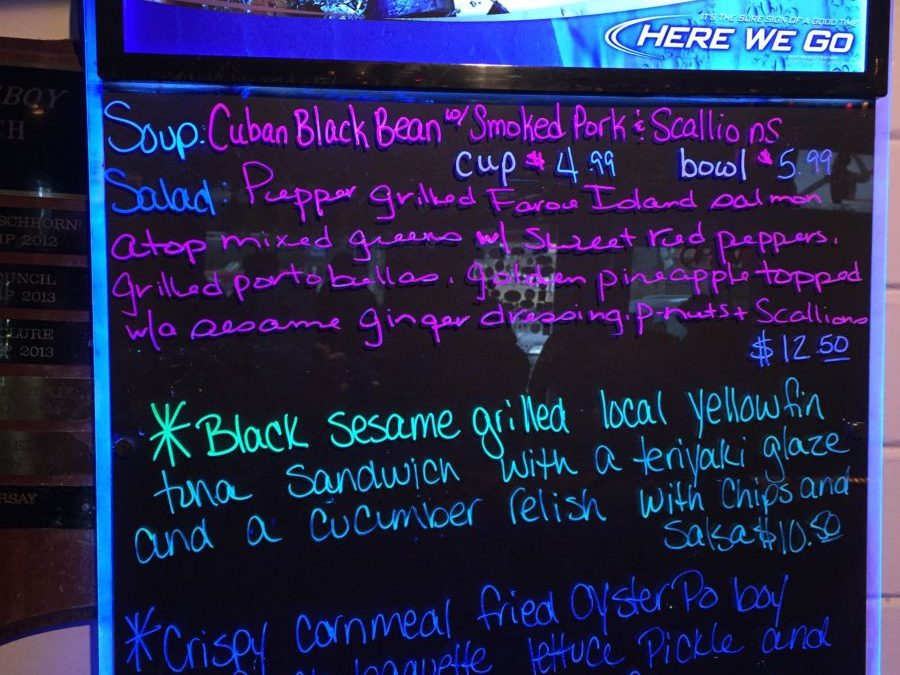 IT'S THE SURE SIGN OF A GOOD TIME
HERE WE GO
BOY
CH
SCHHORN
P 2012
OUNCIL
P 2013
LURE
P 2013
RSAY
Soup: Cuban Black Bean w/ Smoked Pork & Scallions
cup $4.99 bowl $5.99
Salad: Pepper grilled Faroe Island salmon
atop mixed greens w/ sweet red peppers,
grilled portobellas, golden pineapple topped
w/a sesame ginger dressing, p-nuts + Scallions
$12.50
*Black sesame grilled local yellowfin
tuna sandwich with a teriyaki glaze
and a cucumber relish with Chips and
Salsa $10.50
*Crispy cornmeal fried Oyster Po boy
baguette lettuce Pickle and